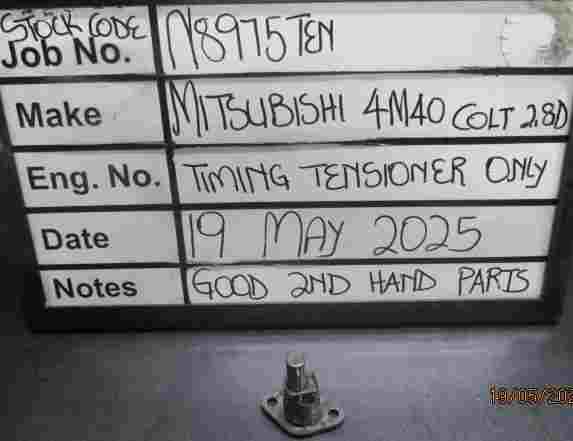 STOCK CODE
Job No. N8975TEN
Make MITSUBISHI 4M40 COLT 2.8D
Eng. No. TIMING TENSIONER ONLY
Date 19 MAY 2025
Notes GOOD 2ND HAND PARTS